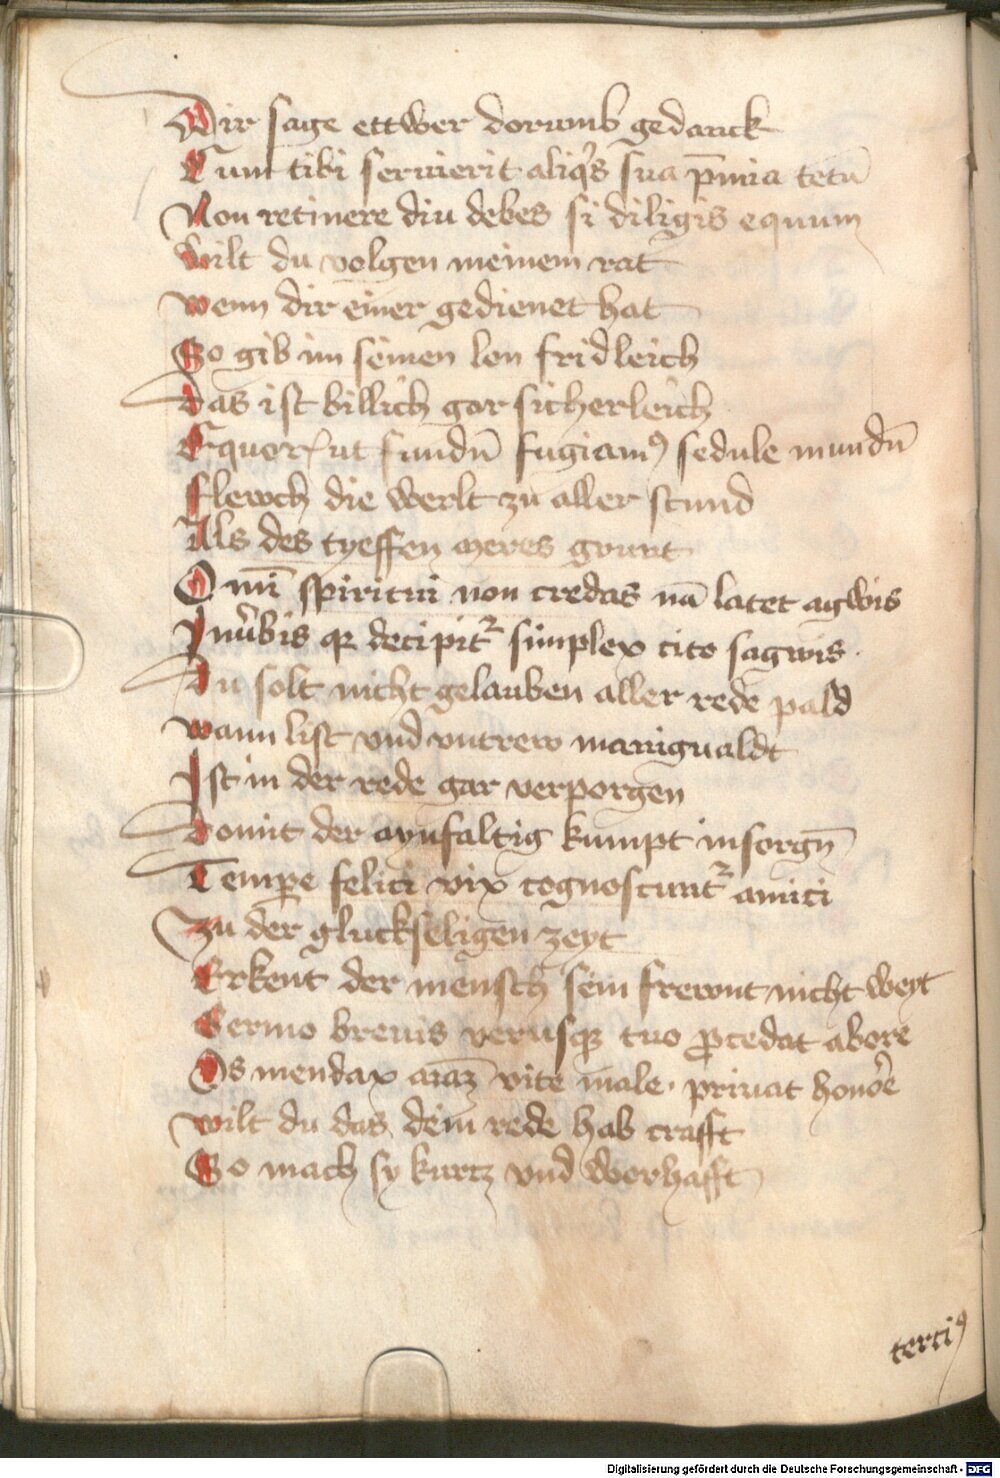 Dir sage ettwer dorumb gedanck
Cum tibi seruierit aliq's sua p̄mia tetū
Non retinere diu debes si diligis equum
wilt du volgen meinem rat
wenn dir einer gedienet hat
So gib im seinen lon fridleich
das ist billich gor sicherleich
Equor ut fundū fugiamꝰ sedule mundū
flewch die werlt zu aller stund
Als des tyeffen meres grunt
Omī spiritui non credas nā latet agwis
In v̉bis qꝛ decipitᷣ simplex cito sagwis
Du solt nicht gelauben aller rede pald
wann list vnd vntrew manigualdt
Ist in der rede gar verporgen
Domit der aynfaltig kumpt in sorgn̄
Temꝑe felici vix cognoscuntᷣ amici
Zu der gluckseligen zeyt
Erkent der mensch sein frewnt nicht weyt
Sermo breuis verusqꝫ tuo ꝓcedat ab ore
Os mendax aīaꝫ vite male priuat honoꝛe
wilt du das dein rede hab crafft
So mach sy kurtz vnd worhafft
terciꝰ
Digitalisierung gefördert durch die Deutsche Forschungsgemeinschaft - DFG